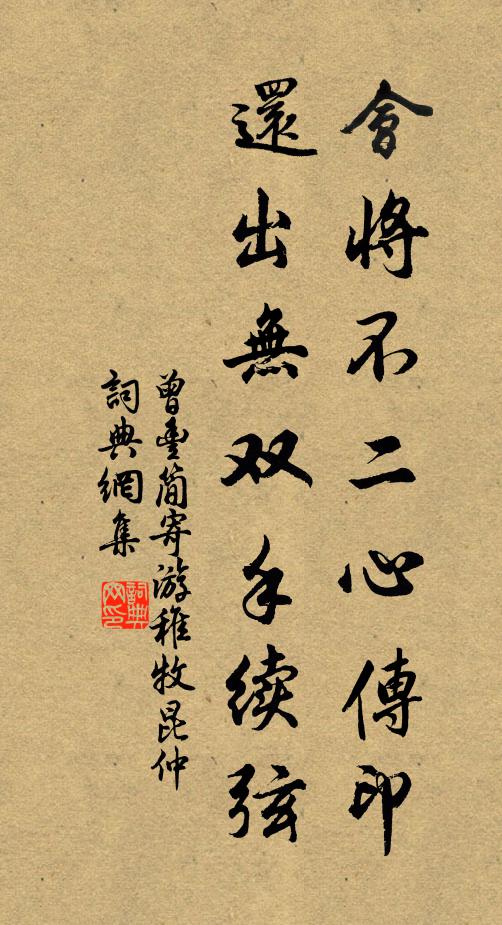 會將不二心傳印
還出無双手續弦
曾豐簡寄游稚牧昆仲
詞典網集
詞典
网印